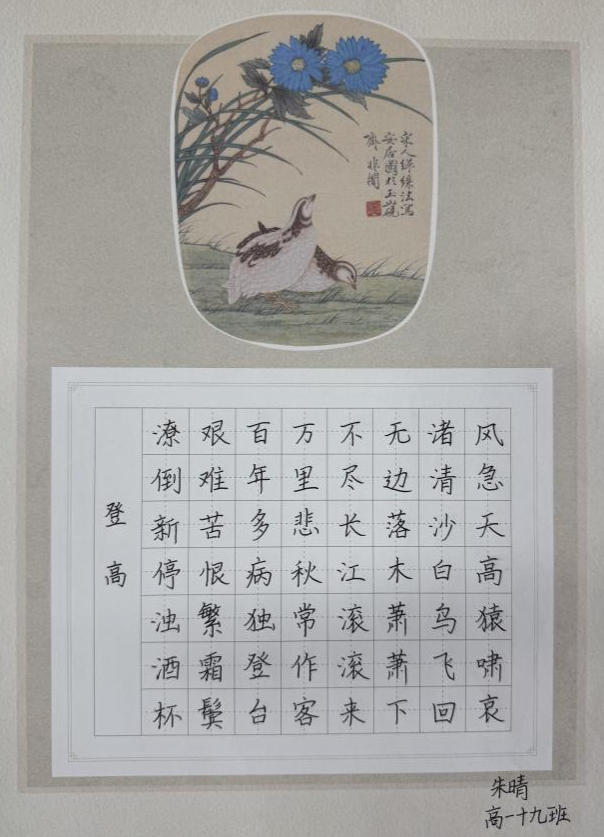 宋人緙絲法寫
安居圖於玉山硯
齋 非闇
登高
风急天高猿啸哀
渚清沙白鸟飞回
无边落木萧萧下
不尽长江滚滚来
万里悲秋常作客
百年多病独登台
艰难苦恨繁霜鬓
潦倒新停浊酒杯
朱晴
高一十九班